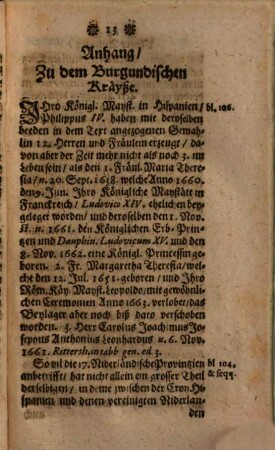 * 13 *
Anhang/
Zu dem Burgundischen
Kräyße.
IHro Königl. Mayst. in Hispanien/ bl. 102.
Philippus IV. haben mit deroselben
beeden in dem Text angezogenen Gemah-
lin 12. Herren und Fräulein erzeugt/ da-
von aber der Zeit mehr nicht als noch 3. im
Leben sein/ als den 1. Fräul. Maria There-
sia/ n. 20. Sept. 1638. welche Anno 1660.
den 9. Jun. Ihro Königliche Maystätt in
Franckreich/ Ludovico XIV. ehelichen bey-
geleget worden/ und deroselben den 1. Nov.
st. n. 1661. den Königlichen Erb-Prin-
tzen und Dauphin. Ludovicum XV. und den
8. Nov. 1662. eine Königl. Princessin ge-
boren. 2. Fr. Margaretha Theresia/ wel-
che den 12. Jul. 1651. geboren/ und Ihro
Röm. Käy. Mayst. Leopoldo/ mit gewöhnli-
chen Ceremonien Anno 1663. verlobet/ das
Beylager aber noch biß dato verschoben
worden. 3. Herr Carolus Joachimus Jo-
sephus Anthonius Leonhardus n. 6. Nov.
1661. Rittershus. tabb gen. ed. 3.
So vil die 17. Niderländische Provintzien bl 104.
anbetrifft/ hat nicht allein ein grosser Theil & seqq.
derselbigen/ in deme zwischen der Cron Hi-
spanien und denen vereinigten Niderlan-
den